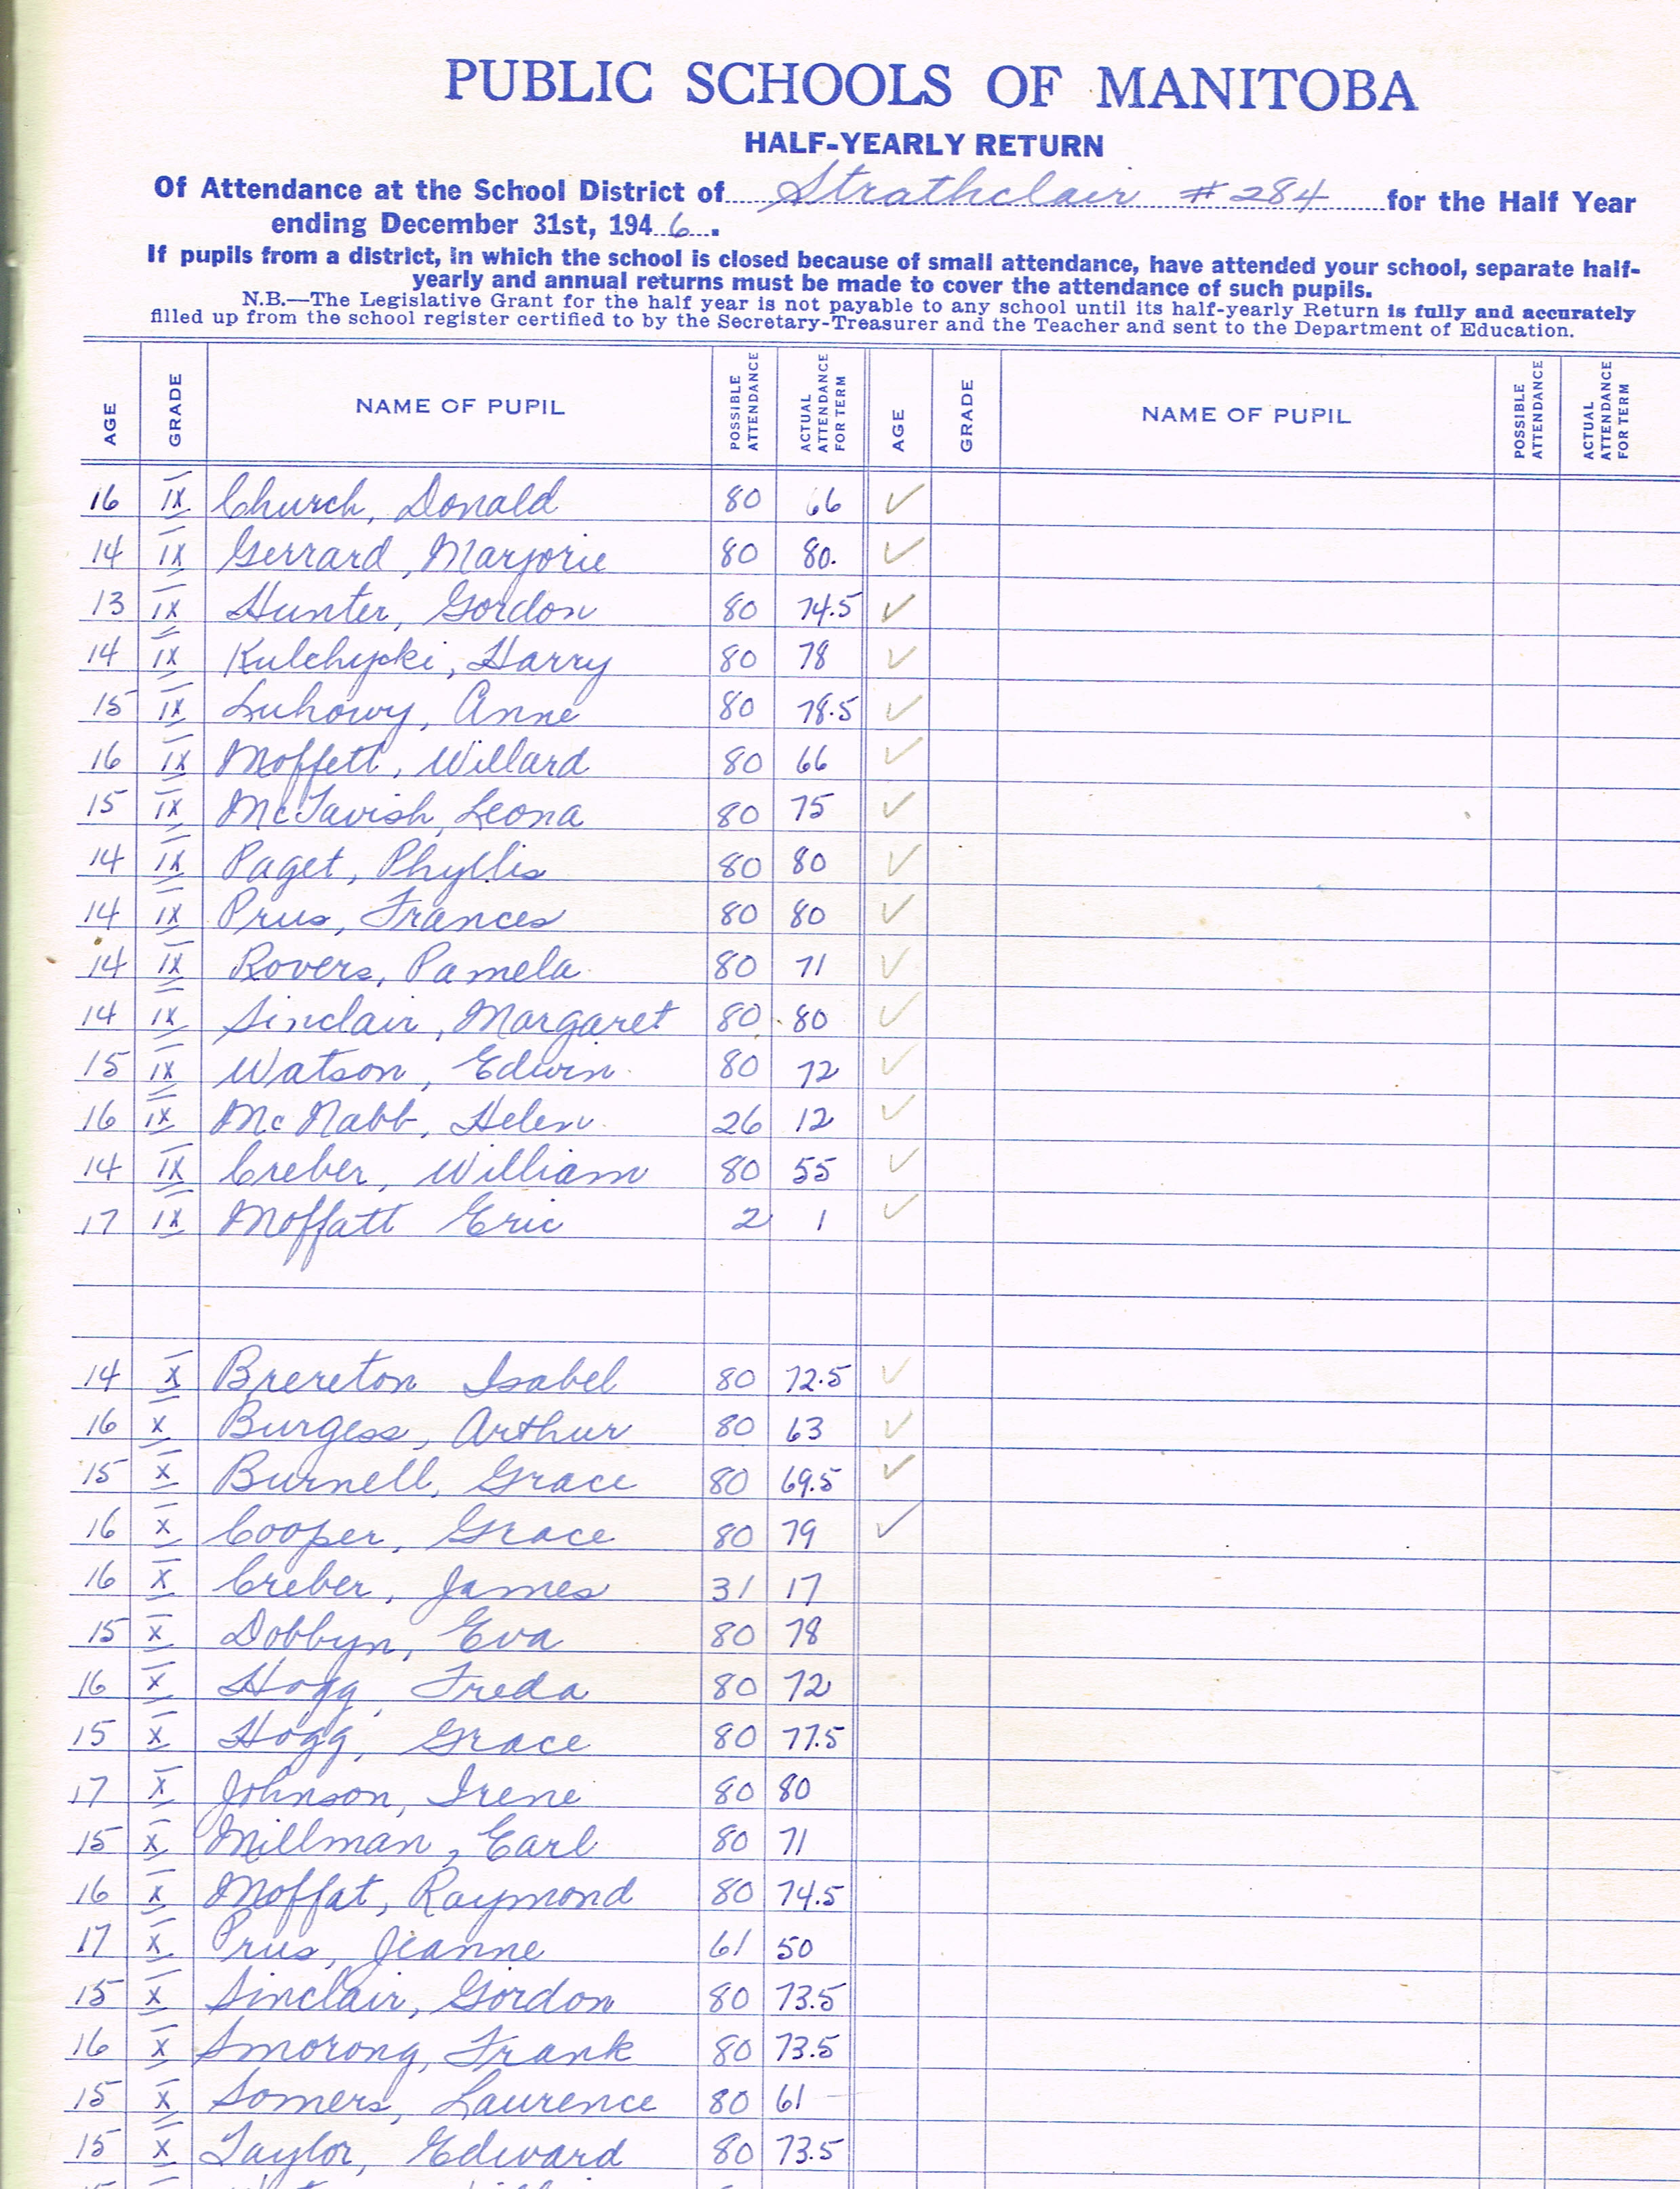 PUBLIC SCHOOLS OF MANITOBA
HALF-YEARLY RETURN
Of Attendance at the School District of Strathclair # 284 for the Half Year
ending December 31st, 1946.
If pupils from a district, in which the school is closed because of small attendance, have attended your school, separate half-
yearly and annual returns must be made to cover the attendance of such pupils.
N.B.—The Legislative Grant for the half year is not payable to any school until its half-yearly Return is fully and accurately
filled up from the school register certified to by the Secretary-Treasurer and the Teacher and sent to the Department of Education.
AGE GRADE NAME OF PUPIL POSSIBLE ATTENDANCE ACTUAL ATTENDANCE FOR TERM AGE GRADE NAME OF PUPIL POSSIBLE ATTENDANCE ACTUAL ATTENDANCE FOR TERM
16 IX Church, Donald 80 66 ✓
14 IX Gerrard, Marjorie 80 80. ✓
13 IX Hunter, Gordon 80 74.5 ✓
14 IX Kulchycki, Harry 80 78 ✓
15 IX Luhowy, Anne 80 78.5 ✓
16 IX Moffett, Willard 80 66 ✓
15 IX McTavish, Leona 80 75 ✓
14 IX Paget, Phyllis 80 80 ✓
14 IX Prus, Frances 80 80 ✓
14 IX Rovers, Pamela 80 71 ✓
14 IX Sinclair, Margaret 80 80 ✓
15 IX Watson, Edwin 80 72 ✓
16 IX McNabb, Helen 26 12 ✓
14 IX Creber, William 80 55 ✓
17 IX Moffatt Eric 2 1 ✓
14 X Brereton Isabel 80 72.5 ✓
16 X Burgess, Arthur 80 63 ✓
15 X Burnell, Grace 80 69.5 ✓
16 X Cooper, Grace 80 79 ✓
16 X Creber, James 31 17
15 X Dobbyn, Eva 80 78
16 X Hogg, Freda 80 72
15 X Hogg, Grace 80 77.5
17 X Johnson, Irene 80 80
15 X Millman, Earl 80 71
16 X Moffat, Raymond 80 74.5
17 X Prus, Jeanne 61 50
15 X Sinclair, Gordon 80 73.5
16 X Smorong, Frank 80 73.5
15 X Somers, Laurence 80 61
15 X Taylor, Edward 80 73.5